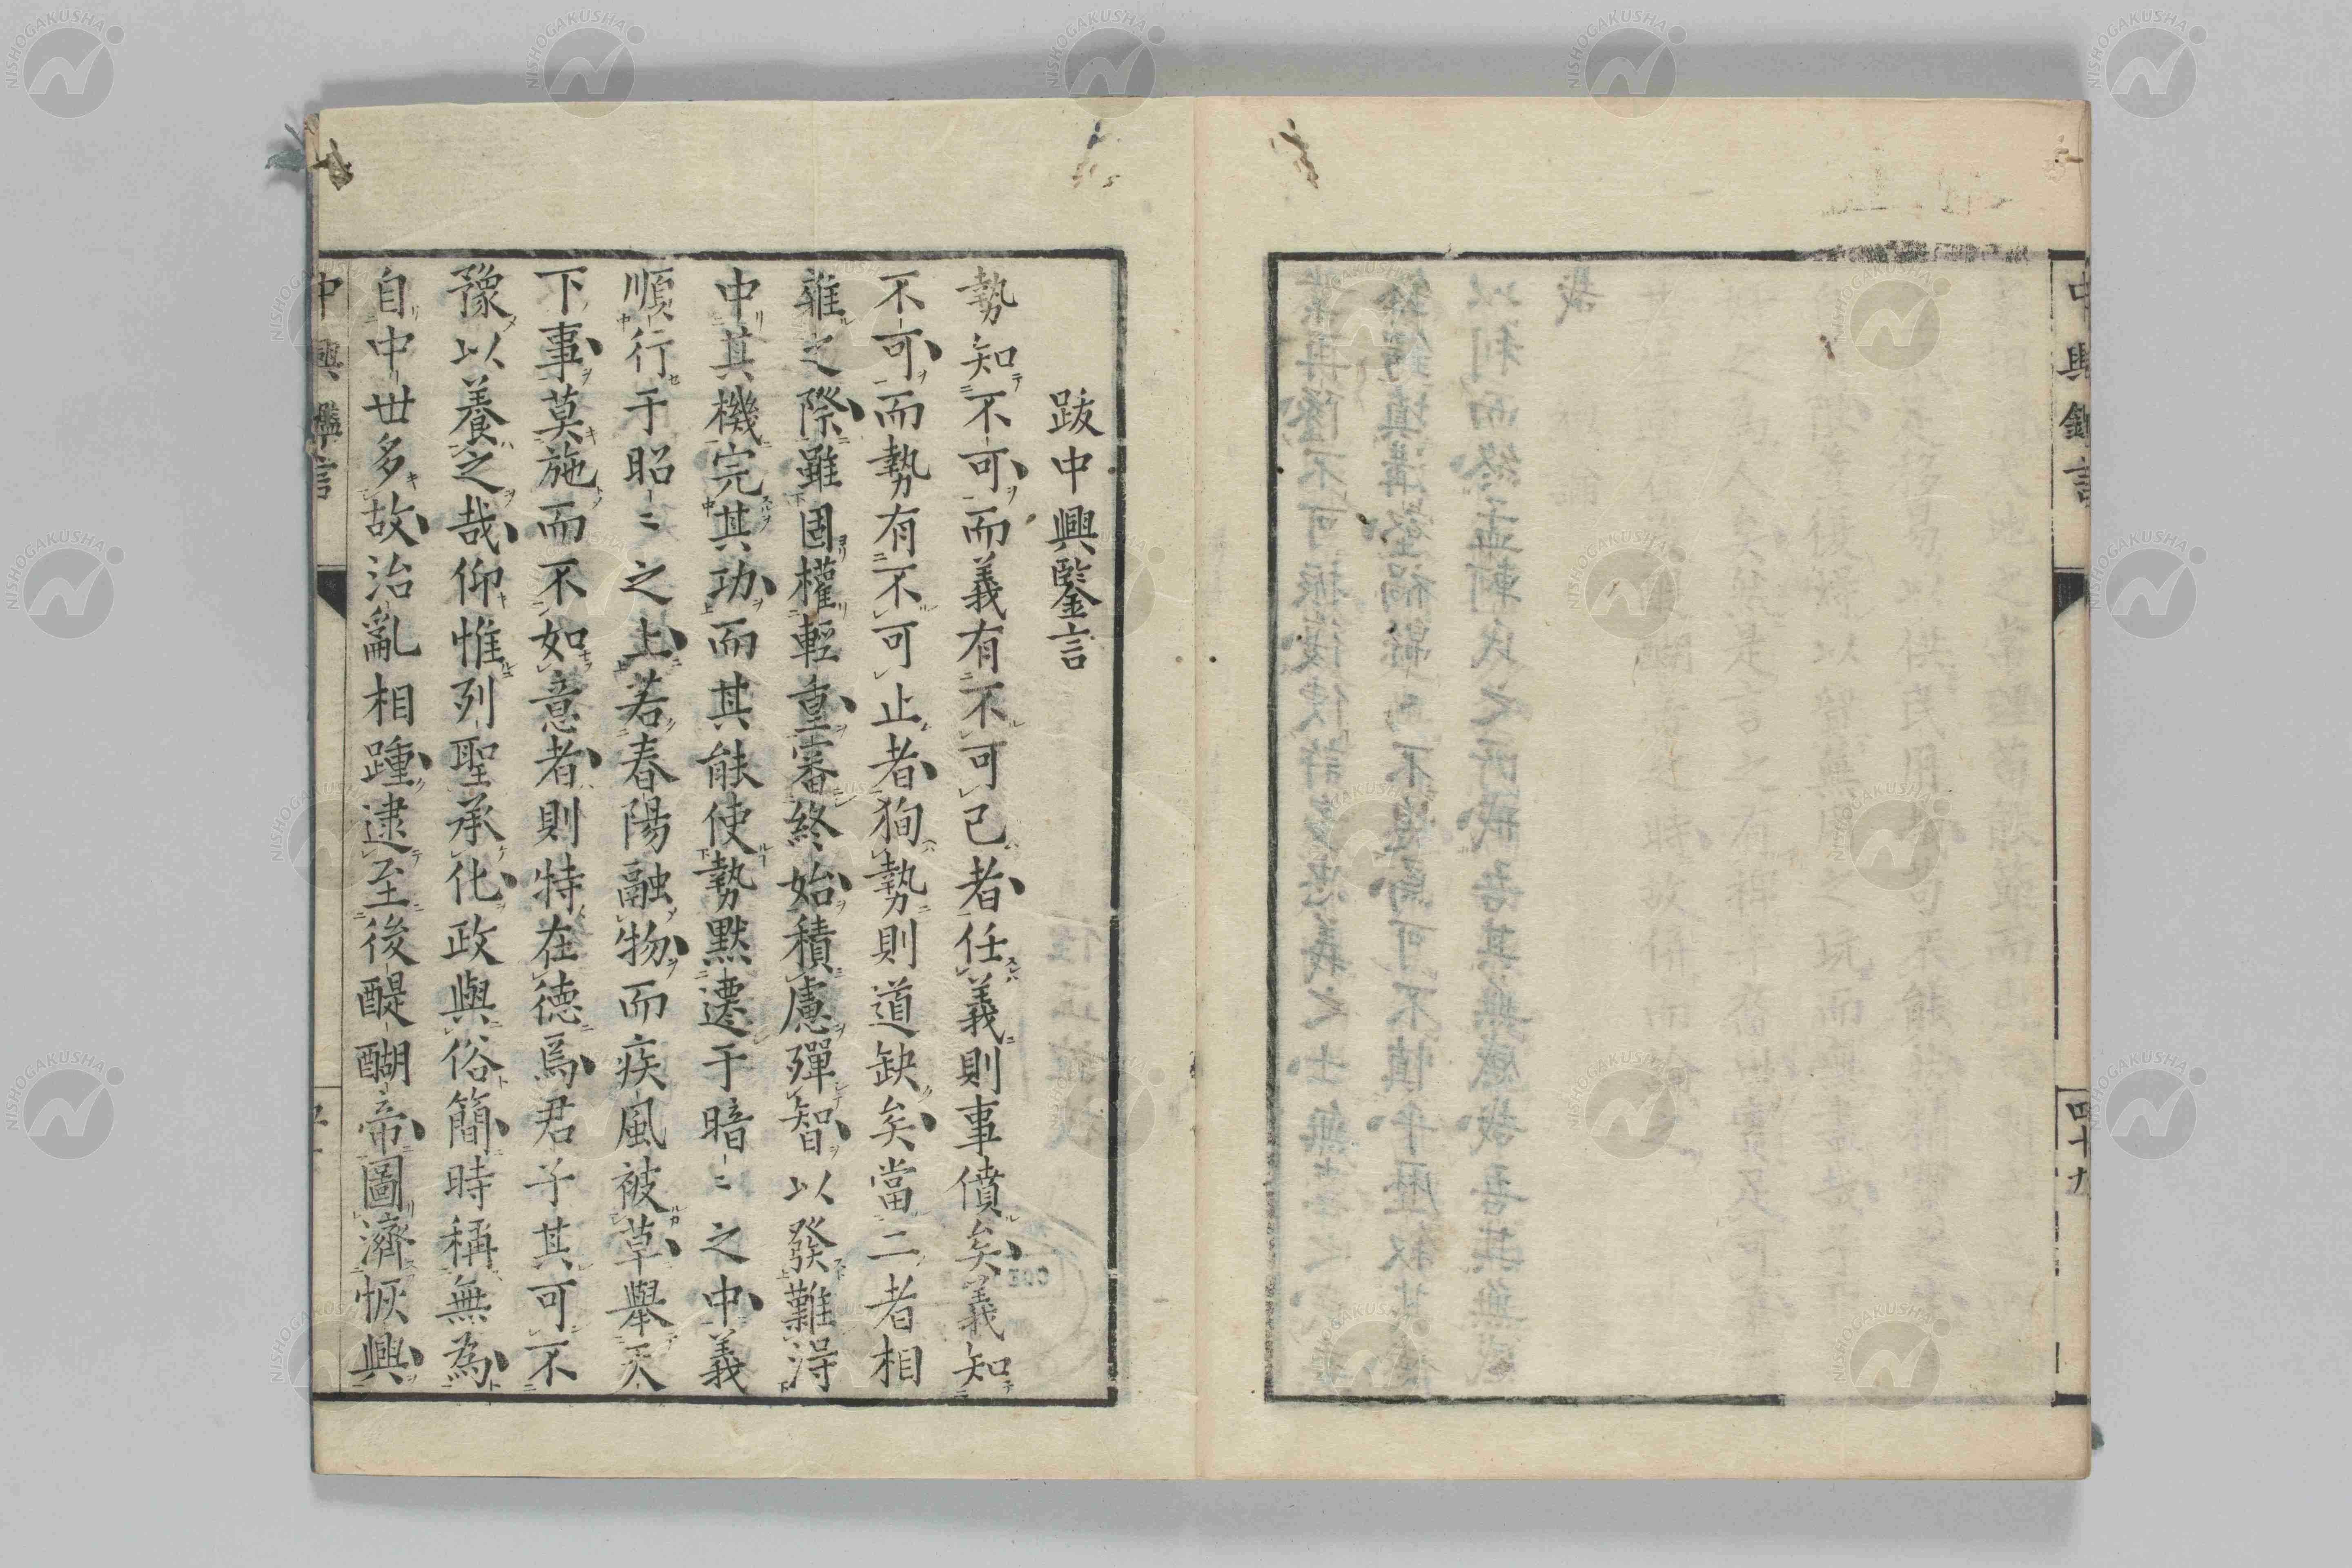 中興鑑言
四十九
跋中興鑒言
勢知不可而義有不可已者任義則事僨矣義知
不可而勢有不可止者狥勢則道缺矣當二者相
離之際雖固權輕重審終始積慮殫智以發難淂
中其機完其功而其能使勢默遷于暗〻之中義
順行于昭〻之上若春陽融物而疾風被草舉天
下事莫施而不如意者則特在德焉君子其可不
豫以養之哉仰惟列聖承化政與俗簡時稱無為
自中世多故治亂相踵逮至後醍醐帝圖濟恢興
中興鑑言
NISHOGAKUSHA